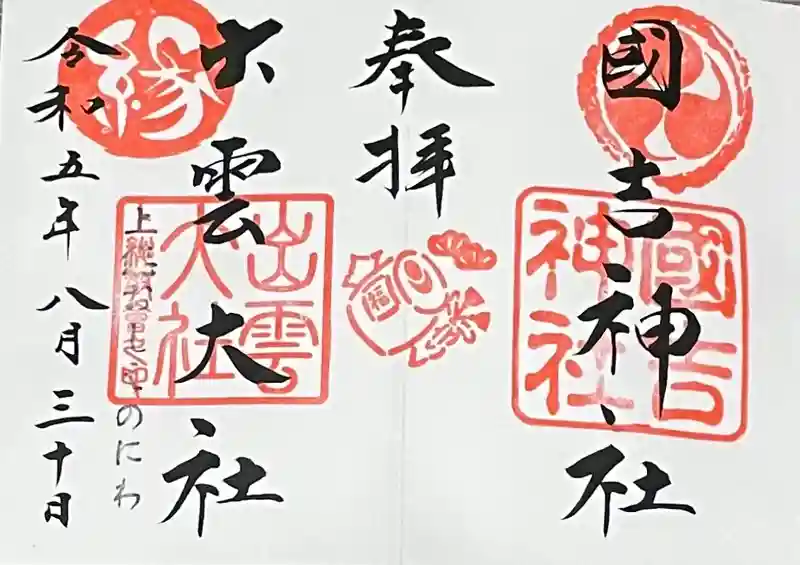 國吉神社
國吉神社
奉拝
福
出雲大社
出雲大社
縁
上総
のにわ
令和五年八月三十日